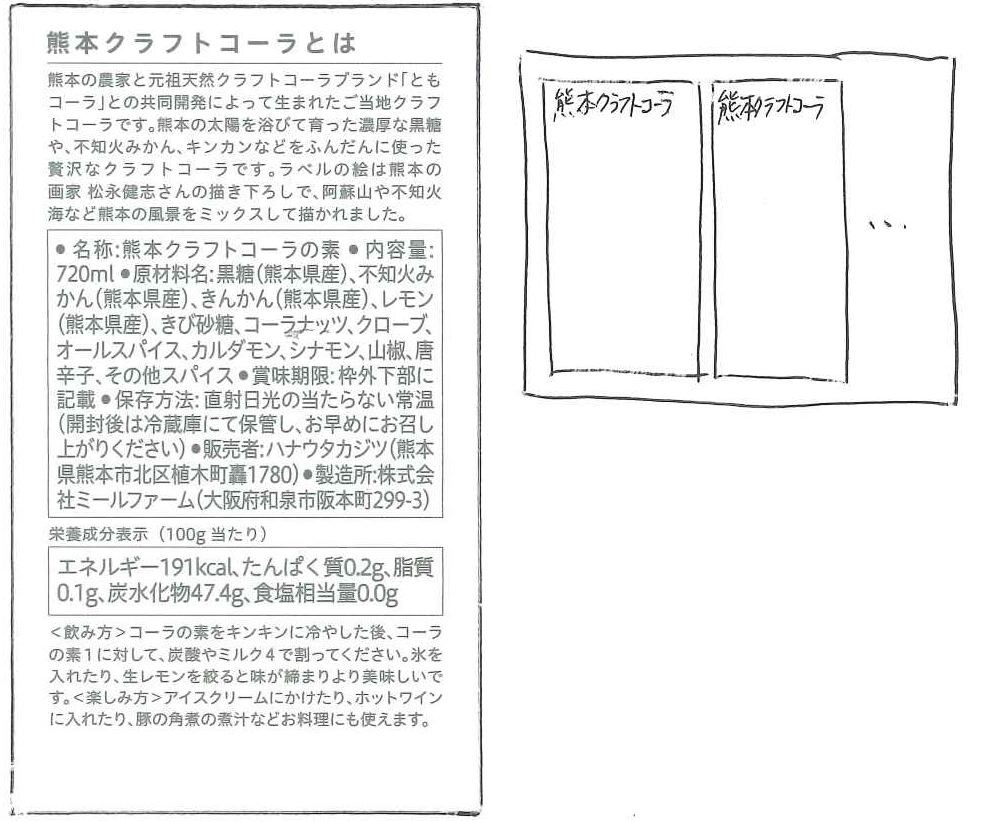 熊本クラフトコーラとは
熊本の農家と元祖天然クラフトコーラブランド「とも
コーラ」との共同開発によって生まれたご当地クラフ
トコーラです。熊本の太陽を浴びて育った濃厚な黒糖
や、不知火みかん、キンカンなどをふんだんに使った
贅沢なクラフトコーラです。ラベルの絵は熊本の
画家 松永健志さんの描き下ろしで、阿蘇山や不知火
海など熊本の風景をミックスして描かれました。
●名称:熊本クラフトコーラの素 ●内容量:
720ml ●原材料名:黒糖(熊本県産)、不知火み
かん(熊本県産)、きんかん(熊本県産)、レモン
(熊本県産)、きび砂糖、コーラナッツ、クローブ、
オールスパイス、カルダモン、シナモン、山椒、唐
辛子、その他スパイス ●賞味期限:枠外下部に
記載 ●保存方法:直射日光の当たらない常温
(開封後は冷蔵庫にて保管し、お早めにお召し
上がりください) ●販売者:ハナウタカジツ(熊本
県熊本市北区植木町轟1780) ●製造所:株式会
社ミールファーム(大阪府和泉市阪本町299-3)
栄養成分表示（100g 当たり）
エネルギー191kcal、たんぱく質0.2g、脂質
0.1g、炭水化物47.4g、食塩相当量0.0g
＜飲み方＞コーラの素をキンキンに冷やした後、コーラ
の素1に対して、炭酸やミルク4で割ってください。氷を
入れたり、生レモンを絞ると味が締まりより美味しいで
す。＜楽しみ方＞アイスクリームにかけたり、ホットワイン
に入れたり、豚の角煮の煮汁などお料理にも使えます。
熊本クラフトコーラ
熊本クラフトコーラ
...